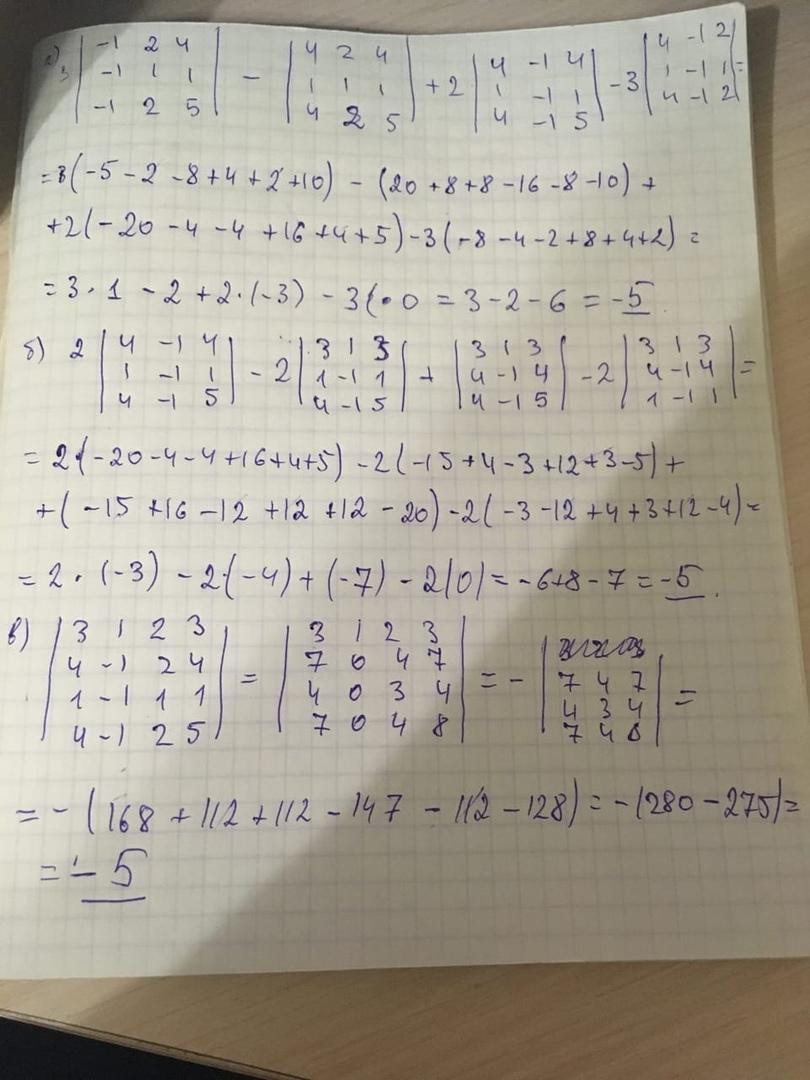 а) 3 | -1 2 4 | - | 4 2 4 | + 2 | 4 -1 4 | - 3 | 4 -1 2 | =
| -1 1 1 | | 1 1 1 | | 1 -1 1 | | 1 -1 1 |
| -1 2 5 | | 4 2 5 | | 4 -1 5 | | 4 -1 2 |
= 3(-5 - 2 - 8 + 4 + 2 + 10) - (20 + 8 + 8 - 16 - 8 - 10) +
+ 2(-20 - 4 - 4 + 16 + 4 + 5) - 3(-8 - 4 - 2 + 8 + 4 + 2) =
= 3 · 1 - 2 + 2 · (-3) - 3(· 0 = 3 - 2 - 6 = -5
б) 2 | 4 -1 4 | - 2 | 3 1 3 | + | 3 1 3 | - 2 | 3 1 3 | =
| 1 -1 1 | | 1 -1 1 | | 4 -1 4 | | 4 -1 4 |
| 4 -1 5 | | 4 -1 5 | | 4 -1 5 | | 1 -1 1 |
= 2·(-20 - 4 - 4 + 16 + 4 + 5) - 2(-15 + 4 - 3 + 12 + 3 - 5) +
+ (-15 + 16 - 12 + 12 + 12 - 20) - 2(-3 - 12 + 4 + 3 + 12 - 4) =
= 2 · (-3) - 2·(-4) + (-7) - 2(0) = -6 + 8 - 7 = -5.
в) | 3 1 2 3 | = | 3 1 2 3 | = - | 7 4 7 | =
| 4 -1 2 4 | | 7 0 4 7 | | 4 3 4 |
| 1 -1 1 1 | | 4 0 3 4 | | 7 4 8 |
| 4 -1 2 5 | | 7 0 4 8 |
= - (168 + 112 + 112 - 147 - 112 - 128) = - (280 - 275) =
= - 5